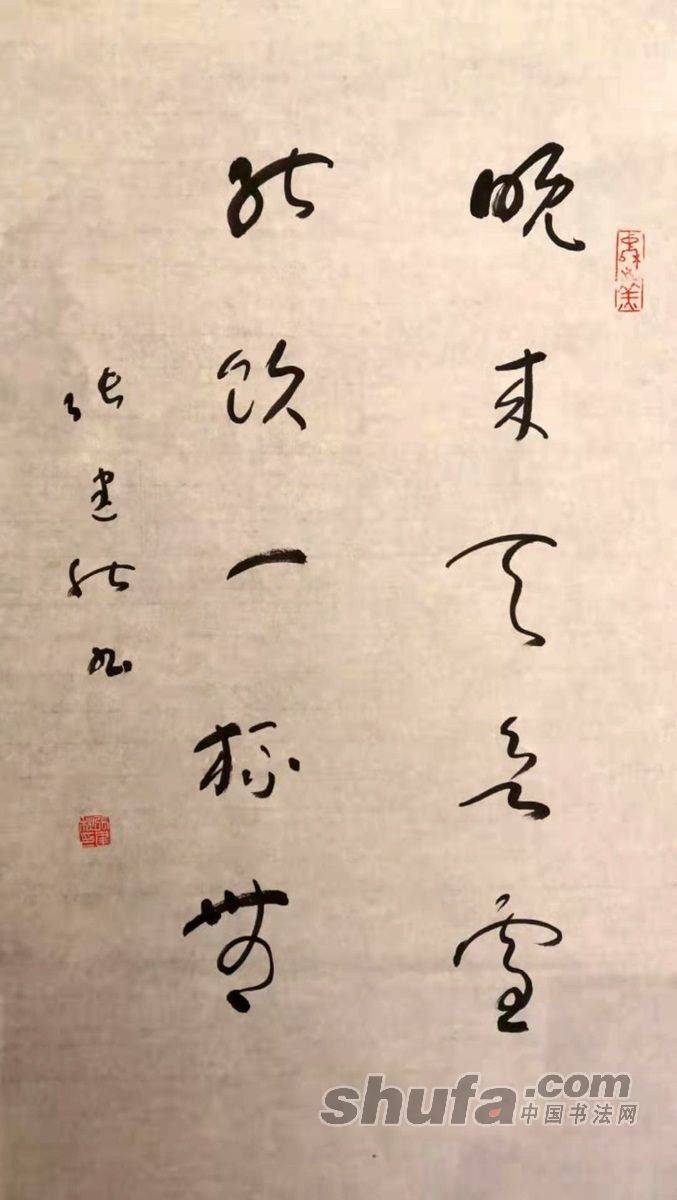 晚来天欲雪
能饮一杯無
张建
shufa.com
中国书法网